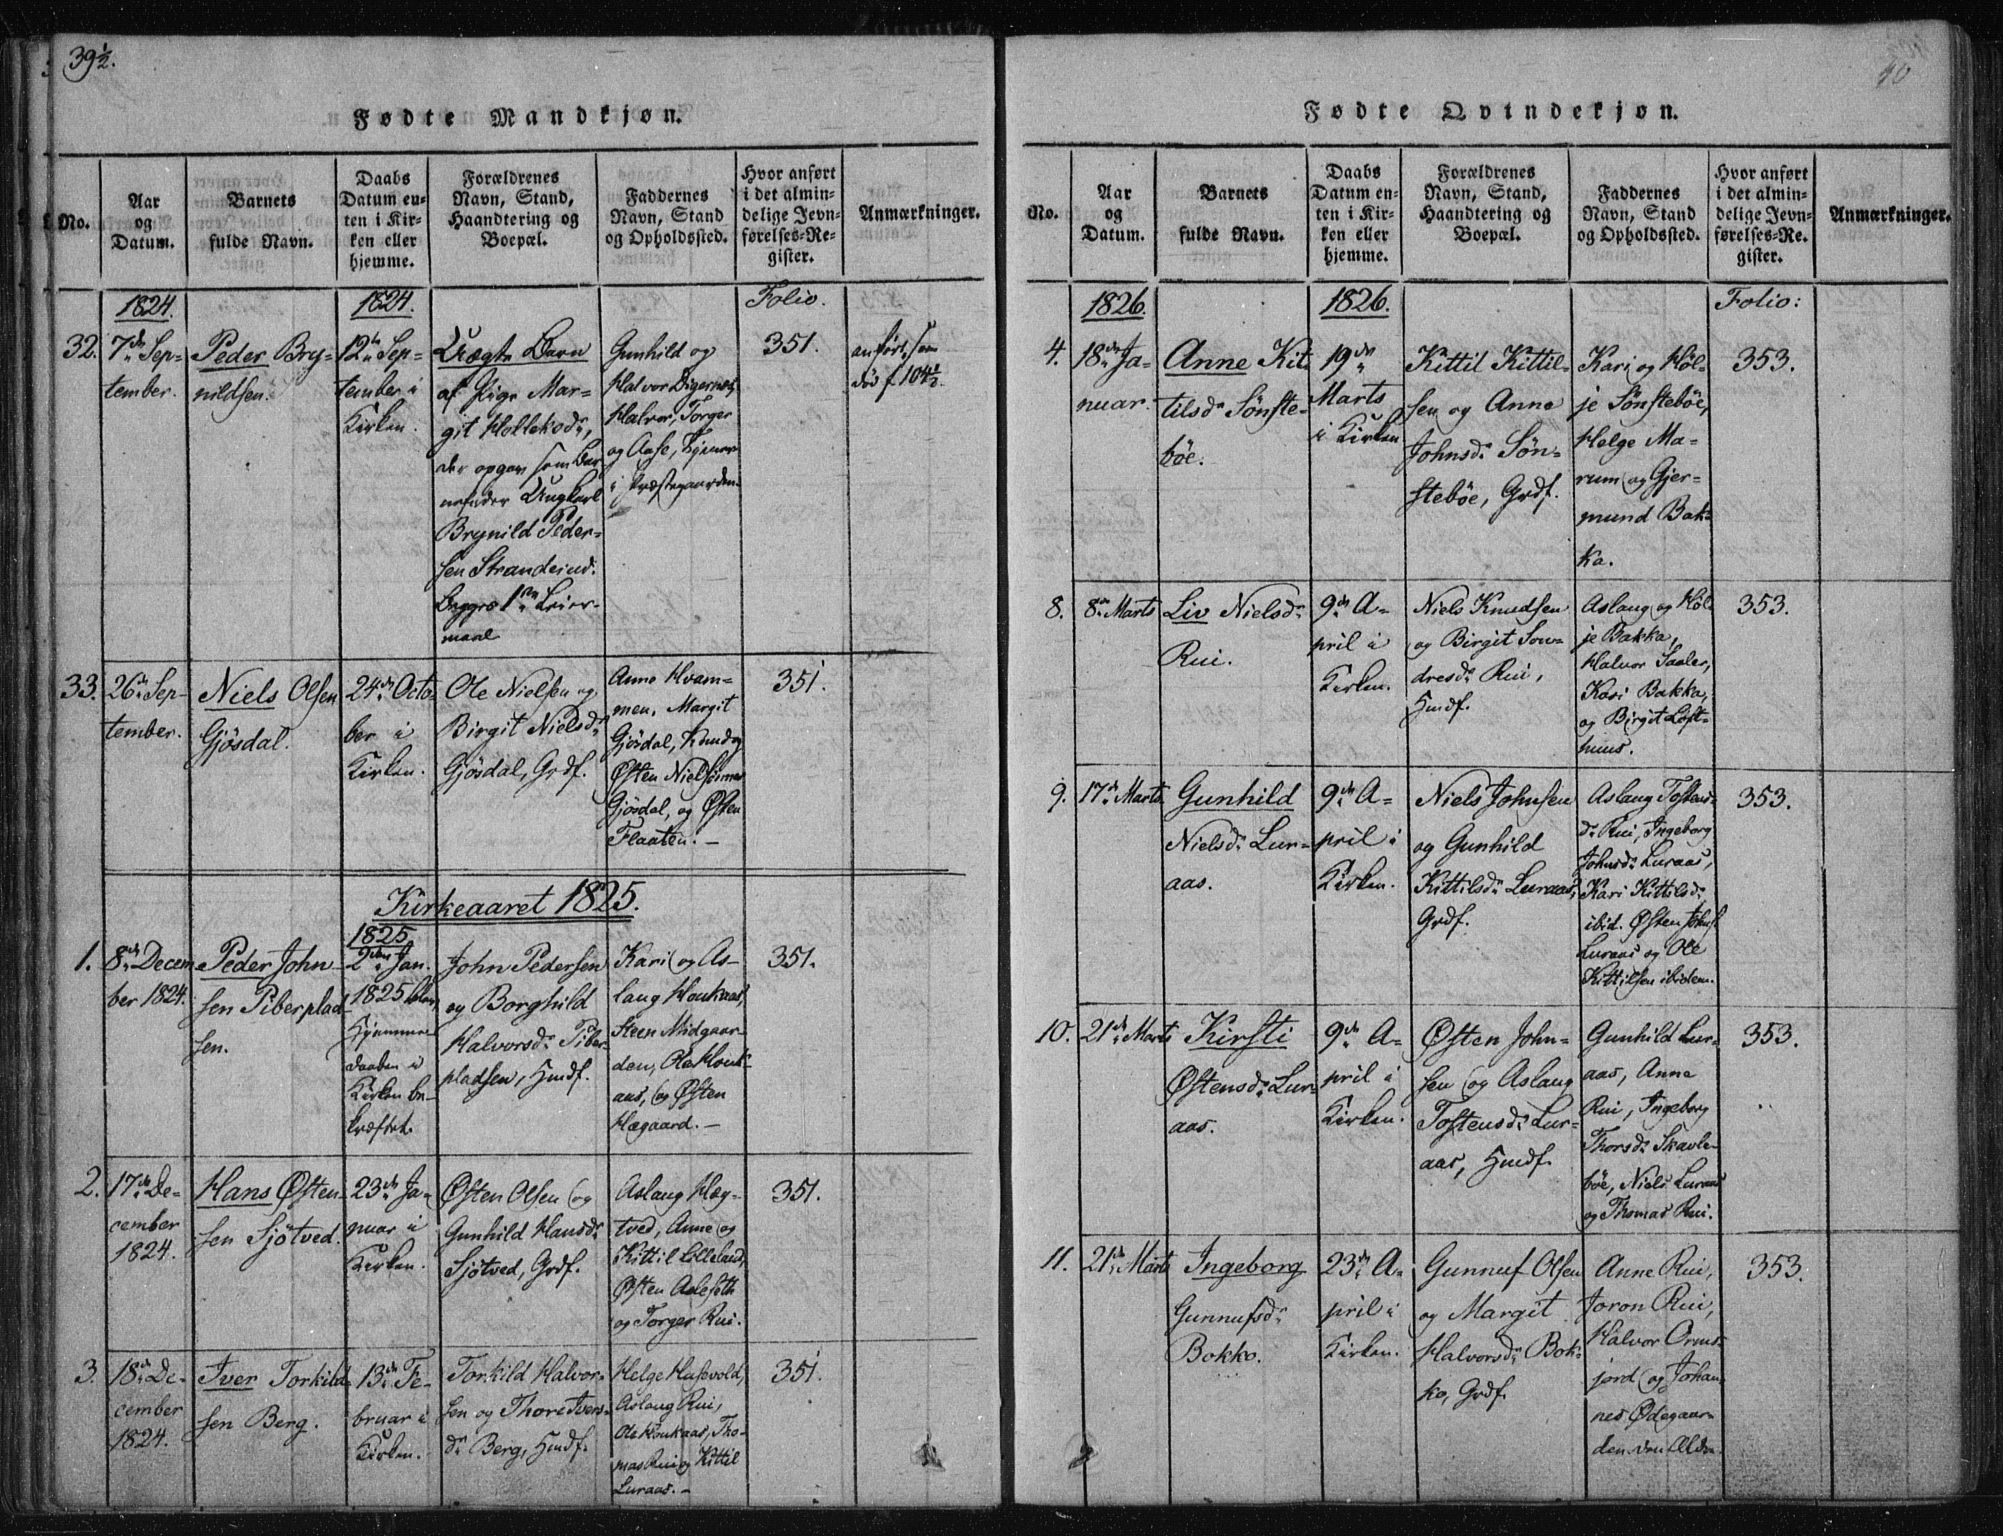 39½.
Fødte Mandkjøn.
No.
Aar
og
Datum.
Barnets
fulde Navn.
Daabs
Datum en-
ten i Kir-
ken eller
hjemme.
Forældrenes
Navn, Stand,
Haandtering og
Boepæl.
Faddernes
Navn, Stand
og Opholdssted.
Hvor anført
i det almin-
delige Jevn-
førelses-Re-
gister.
Anmærkninger.
1824.
1824.
Folio.
32.
7de Sep-
tember.
Peder Bry-
nildsen.
12te Sep-
tember i
Kirken.
Uægte Barn
af Pige Mar-
git Hollekosdr,
der opgav som Bar-
nefader Ungkarl
Brynild Peder-
sen Strande
Begges 1ste Leier-
maal
Gunhild og
Halvor Digernes,
Halvor, Torger
og Aase,
i Præstegaarden.
351.
anført som
død f. 104½.
33.
26de Sep-
tember.
Niels Olsen
Gjösdal.
24de Octo-
ber i
Kirken.
Ole Nielsen og
Birgit Nielsdr
Gjösdal, Grdf.
Anne Hvam-
men, Margit
Gjösdal, Knud og
Østen Nielssönner
Gjösdal, og Østen
Flaaten. —
351.
Kirkeaaret 1825.
1.
8de Decem-
ber 1824.
Peder John-
sen Piberplad-
sen.
1825
2den Jan.
1825 blev
Hjemme-
daaben i
Kirken be-
kræftet.
John Pedersen
og Borghild
Halvorsdr Piber-
pladsen, Hmdf.
Kari og As-
laug Houkaas,
Steen Midgaar-
den, Ole Houk-
aas, og Østen
Hægaard. —
351.
2.
17de De-
cember
1824.
Hans Østen-
sen Sjötved.
23de Ja-
nuar i
Kirken.
Østen Olsen og
Gunhild Hansdr
Sjötved, Grdf.
Aslaug Hæg-
tved, Anne og
Kittil Lilleland,
Østen Aslefeth
og Torger Rui.
351.
3.
18de De-
cember
1824.
Iver Torkild-
sen Berg.
13de Fe-
bruar i
Kirken.
Torkild Halvor-
sen og Thore Ivers-
dr Berg, Hmdf.
Helge Hasevold,
Aslaug Rui,
Ole Houkaas, Tho-
mas Rui og Kittil
Luraas. —
351.
40
Fødte Qvindekjøn.
No.
Aar
og
Datum.
Barnets
fulde Navn.
Daabs
Datum en-
ten i Kir-
ken eller
hjemme.
Forældrenes
Navn, Stand,
Haandtering og
Boepæl.
Faddernes
Navn, Stand
og Opholdssted.
Hvor anført
i det almin-
delige Jevn-
førelses-Re-
gister.
Anmærkninger.
1826.
1826.
Folio:
4.
18de Ja-
nuar.
Anne Kit-
tilsdr Sönste-
böe.
19de
Marts
i Kirken
Kittil Kittil-
sen og Anne
Johnsdr Sön-
steböe, Grdf.
Kari og Höl-
je Sönsteböe,
Helge Ma-
rum og Gjer-
mund Bak-
ka.
353.
8.
8de Marts
Liv Nielsdr
Rui.
9de A-
pril i
Kirken.
Niels Knudsen
og Birgit Son-
dresdr Rui,
Hmdf.
Aslaug og Höl-
je Bakka,
Halvor Saaler,
Kari Bakka,
og Birgit Loft-
huus.
353.
9.
17de Marts
Gunhild
Nielsdr Lur-
aas.
9de A-
pril i
Kirken.
Niels Johnsen
og Gunhild
Kittilsdr Luraas,
Grdf.
Aslaug Tostens-
dr Rui, Ingeborg
Johnsdr Luraas,
Kari Kittilsdr
ibid. Østen Johns.
Luraas og Ole
Kittilsen ibidem.
353.
10.
21de Marts
Kirsti
Østensdr Lur-
aas.
9de A-
pril i
Kirken.
Østen John-
sen og Aslaug
Tostensdr Lur-
aas, Hmdf.
Gunhild Lur-
aas, Anne
Rui, Ingeborg
Thorsdr Skavle-
böe, Niels Luraas
og Thomas Rui.
353.
11.
21de Marts
Ingeborg
Gunnufsdr
Bokko.
23de A-
pril i
Kirken.
Gunnuf Olsen
og Margit
Halvorsdr Bok-
ko, Grdf.
Anne Rui,
Joron Rui,
Halvor Orms-
jord og Johan-
nes Ødegaar-
den den Ældre.
353.